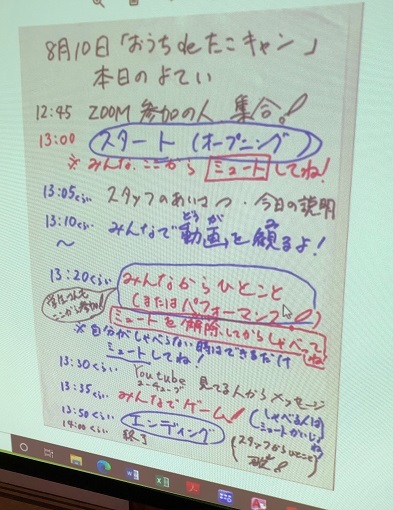 8月10日「おうちdeたこキャン」
本日のよてい
12:45 ZOOM参加の人 集合!
13:00 スタート(オープニング)
※みんなここからミュートしてね!
13:05くらい スタッフのあいさつ・今日の説明
13:10くらい みんなで動画を観るよ!
どうが み
〜
13:20くらい みんなからひとこと
(またはパフォーマンス!)
ここから参加!
ミュートを解除してからしゃべってね
※自分がしゃべらない時はできるだけ
ミュートしてね!
13:30くらい Youtube 見てる人からメッセージ
ユーチューブ
13:35くらい みんなでゲーム!
(しゃべる人は
ミュートかいじょ
ね
13:50くらい エンディング
(スタッフからひとこと
14:00くらい 終了